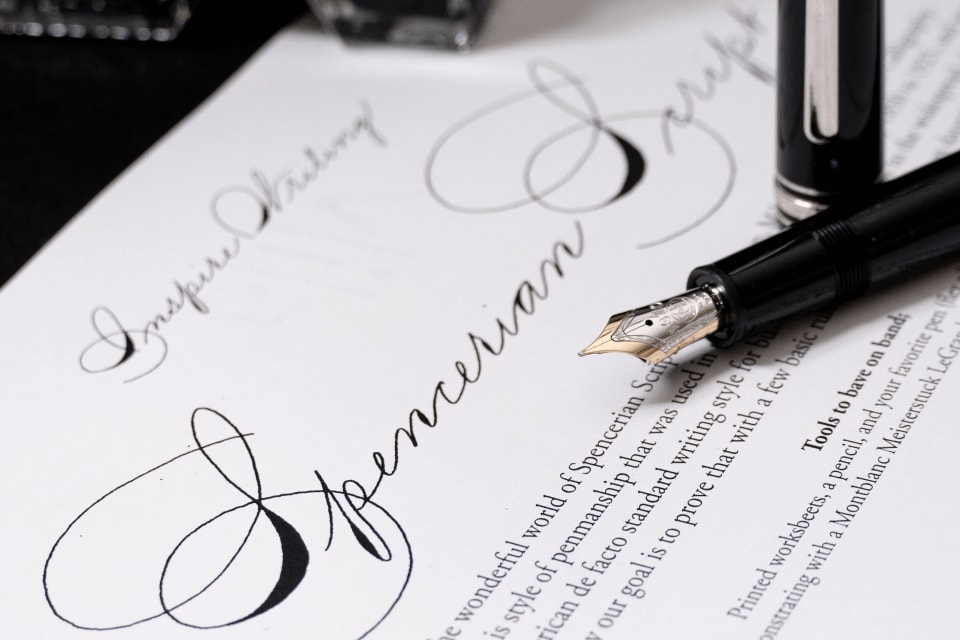 Inspire Writing
Spencerian Script
e wonderful world of Spencerian Scrip
is style of penmanship that was used in
rican de facto standard writing style for bu
y our goal is to prove that with a few basic ru
Tools to have on hand;
Printed worksheets, a pencil, and your favorite pen
onstrating with a Montblanc Meisterstuck LeGran